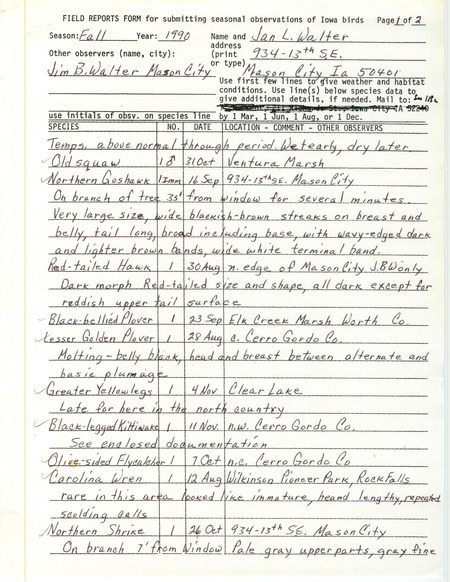 FIELD REPORTS FORM for submitting seasonal observations of Iowa birds Page 1 of 2
Season: Fall Year: 1990 Name and Jan L. Walter
address
Other observers (name, city): (print 934-13th S.E.
or type)
Jim B. Walter Mason City Mason City Ia 50401
Use first few lines to give weather and habitat
conditions. Use line(s) below species data to
give additional details, if needed. Mail to:
use initials of obsv. on species line by 1 Mar, 1 Jun, 1 Aug, or 1 Dec.
SPECIES NO. DATE LOCATION - COMMENT - OTHER OBSERVERS
Temps. above normal through period. Wet early, dry later
Oldsquaw 1♂ 31 Oct Ventura Marsh
Northern Goshawk 1 Imm 16 Sep 934-13th SE. Mason City
On branch of tree 35' from window for several minutes.
Very large size, wide blackish-brown streaks on breast and
belly, tail long, broad including base, with wavy-edged dark
and lighter brown bands, wide white terminal band.
Red-tailed Hawk 1 30 Aug n. edge of Mason City J.B.W only
Dark morph Red-tailed size and shape, all dark except for
reddish upper tail surface
Black-bellied Plover 1 23 Sep Elk Creek Marsh Worth Co.
Lesser Golden Plover 1 28 Aug c. Cerro Gordo Co.
Molting - belly black, head and breast between alternate and
basic plumage
Greater Yellowlegs 1 4 Nov Clear Lake
Late for here in the north country
Black-legged Kittiwake 1 11 Nov n.w. Cerro Gordo Co.
See enclosed documentation
Olive-sided Flycatcher 1 7 Oct n.c. Cerro Gordo Co
Carolina Wren 1 12 Aug Wilkinson Pioneer Park, Rock Falls
rare in this area looked like immature, heard lengthy, repeated
scolding calls
Northern Shrike 1 26 Oct 934-13th SE. Mason City
On branch 7' from window Pale gray upperparts, gray fine